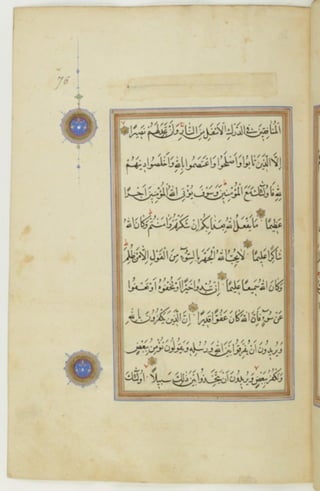 76
المنافقين في الدرك الاسفل من النار ولن تجد لهم نصيرا
الا الذين تابوا واصلحوا واعتصموا بالله واخلصوا دينهم
لله فاولئك مع المؤمنين وسوف يؤتي الله المؤمنين اجرا
عظيما ما يفعل الله بعذابكم ان شكرتم وامنتم وكان الله
شاكرا عليما لا يحب الله الجهر بالسوء من القول الا من ظلم
وكان الله سميعا عليما ان تبدوا خيرا او تخفوه او تعفوا
عن سوء فان الله كان عفوا قديرا ان الذين يكفرون بالله
ورسله ويريدون ان يفرقوا بين الله ورسله ويقولون نؤمن ببعض
ونكفر ببعض ويريدون ان يتخذوا بين ذلك سبيلا اولئك